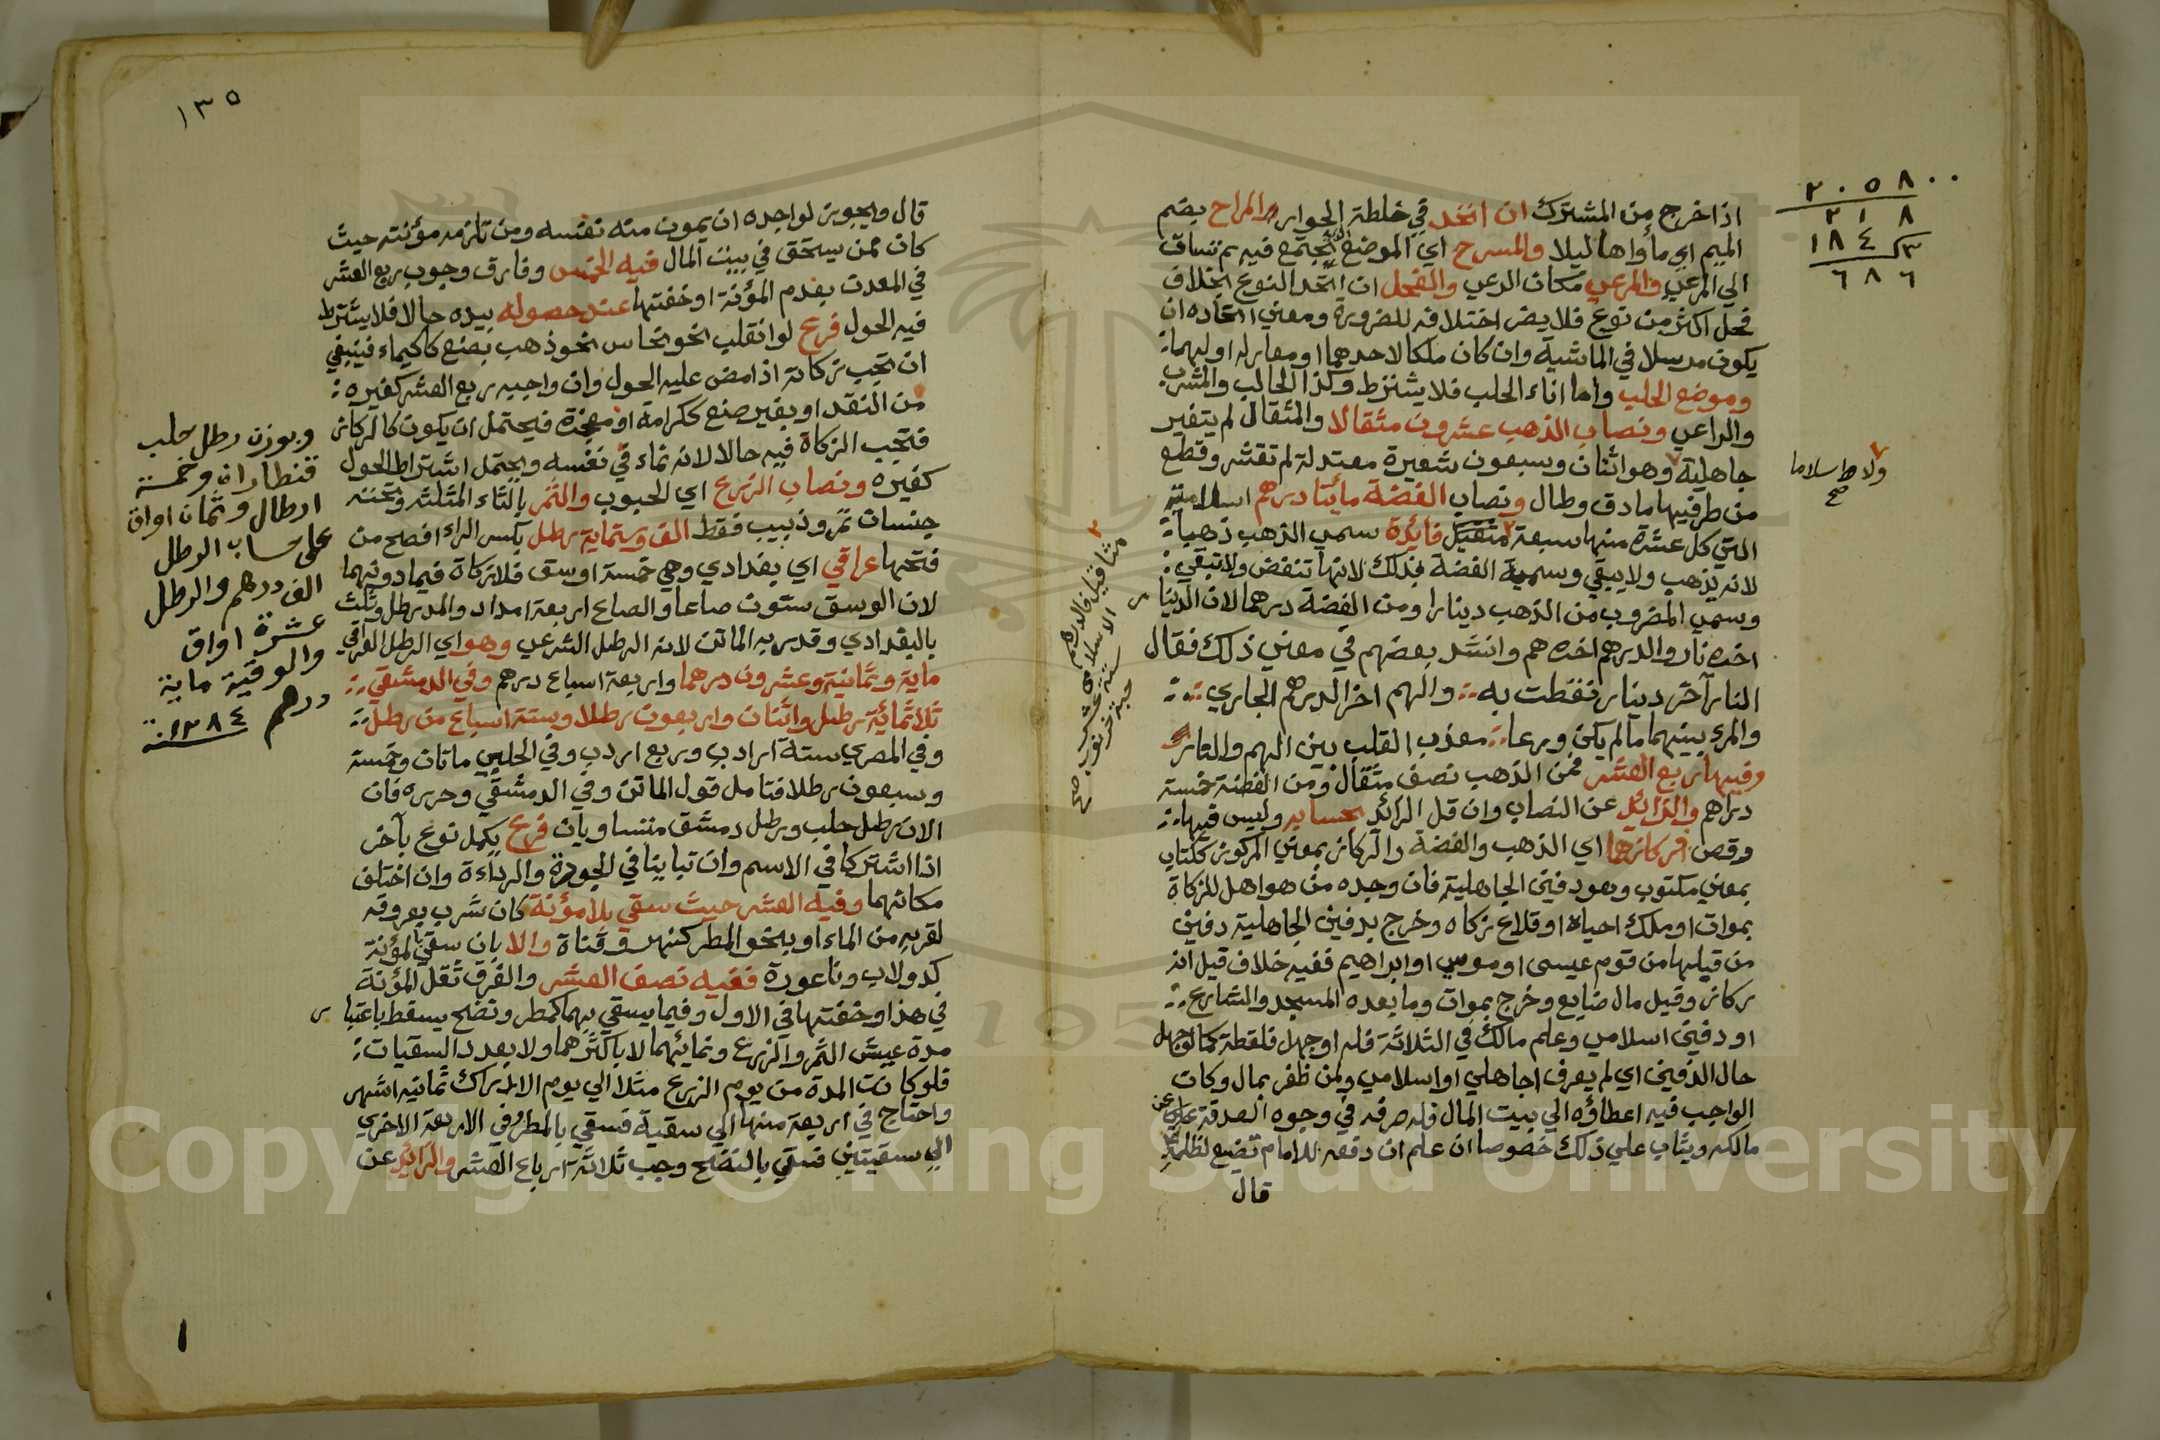 اذا خرج من المشترك ان اتحد في خلطة الجوار والمراح بضم
الميم اي مأواها ليلا والمسرح اي الموضع الذي تجتمع فيه ثم تساق
الي المرعي والمرعي مكان الرعي والفحل ان اتحد النوع بخلاف
فحل اكثر من نوع فلا يضر اختلافه للضرورة ومعني اتحاده ان
يكون مرسلا في الماشية وان كان ملكا لاحدهما او معارا له او لهما
وموضع الحلب واما اناء الحلب فلا يشترط وكذا الحالب والمشرب
والراعي ونصاب الذهب عشرون مثقالا والمثقال لم يتغير
جاهلية وهو اثنان وسبعون شعيرة معتدلة لم تقشر وقطع
من طرفيها ما دق وطال ونصاب الفضة مائتا درهم اسلامية
التي كل عشرة منها سبعة مثاقيل فايدة سمي الذهب ذهبا
لانه يذهب ولا يبقي وسمية الفضة بذلك لانها تنفض ولا تبقي
وسمي المضروب من الذهب دينارا ومن الفضة درهما لان الدينار
اخره نار والدرهم اخره هم وانشد بعضهم في معني ذلك فقال
النار آخر دينار نطقت به والهم اخر الدرهم الجاري
والمرء بينهما ما لم يكن ورعا معذب القلب بين الهم والنار
وفيها ربع العشر فمن الذهب نصف مثقال ومن الفضة خمسة
دراهم والزائد عن النصاب وان قل الزائد بحسابه وليس فيها
وقص فركازها اي الذهب والفضة والركاز بمعني المركوز ككتاب
بمعني مكتوب وهو دفين الجاهلية فان وجده من هو اهل للزكاة
بموات او ملك احياه او قلاع زكاه وخرج بدفين الجاهلية دفين
من قبلها من قوم عيسى او موسي او ابراهيم ففيه خلاف قيل انه
ركاز وقيل مال ضايع وخرج بموات وما بعده المسجد والشارع
او دفين اسلامي وعلم مالك في الثلاثة فله او جهل فلقطة كما لو جهل
حال الدفين اي لم يعرف اجاهلي او اسلامي ولمن ظفر بمال وكان
الواجب فيه اعطاؤه الي بيت المال فله صرفه في وجوه الصدقة علي عن
مالكه ويثاب علي ذلك خصوصا ان علم ان دفعه للامام تضيع لظلمه
قال
٢٠٥٨٠٠
٢١٨
١٨٤٣
٦٨٦
ولا اسلاما
صح
مثاقيل فالدرهم
الاسلامي
ستة عشر
حبة خرنوب صح
١٣٥
قال ويجوز لواجده ان يمون منه نفسه ومن تلزمه مؤنته حيث
كان ممن يستحق في بيت المال فيه الخمس وفارق وجوب ربع العشر
في المعدن بعدم المؤنة او خفتها عند حصوله بيده حالا فلا يشترط
فيه الحول فرع لو انقلب نحو نحاس نحو ذهب بصنع ككيماء فينبغي
ان تجب زكاته اذا مض عليه الحول وان واجبه ربع العشر كغيره
من النقد او بغير صنع ككرامة او معجزة فيحتمل ان يكون كالركاز
فتجب الزكاة فيه حالا لانه نماء في نفسه ويحتمل اشتراط الحول
كغيره ونصاب الزرع اي الحبوب والثمر بالثاء المثلثة وتحته
جنسان تمر وزبيب فقط الف وستماية رطل بكسر الراء افصح من
فتحها عراقي اي بغدادي وهي خمسة اوسق فلا زكاة فيما دونهما
لان الوسق ستون صاعا والصاع اربعة امداد والمد رطل وثلث
بالبغدادي وقدر به الماتن لانه الرطل الشرعي وهو اي الرطل العراقي
ماية وثمانية وعشرون درهما واربعة اسباع درهم وفي الدمشقي
ثلاثمائة رطل واثنان واربعون رطلا وستة اسباع من رطل
وفي المصري ستة ارادب وربع اردب وفي الحلبي ماتان وخمسة
وسبعون رطلا فتامل قول الماتن وفي الدمشقي وحرره فان
الان رطل حلب ورطل دمشق متساويان فرع يكمل نوع بآخر
اذا اشتركا في الاسم وان تباينا في الجودة والرداءة وان اختلف
مكانهما وفيه العشر حيث سقي بلا مؤنة كان شرب بعروقه
لقربه من الماء او بنحو المطر كنهر وقناة والا بان سقي بمؤنة
كدولاب وناعورة ففيه نصف العشر والفرق ثقل المؤنة
في هذا وخفتها في الاول وفيما يسقي بهما كمطر ونضح يسقط باعتبار
مدة عيش الثمر والزرع ونمائهما لا باكثرهما ولا بعدد السقيات
فلو كانت المدة من يوم الزرع مثلا الي يوم الادراك ثمانيه اشهر
واحتاج في اربعة منها الي سقية فسقي بالمطر وفي الاربعة الاخري
الي سقيتين فسقي بالنضح وجب ثلاثة ارباع العشر والزائد عن
وبوزن رطل حلب
قنطاران وخمسة
ارطال وثمان اواق
علي حساب الرطل
الف درهم والرطل
عشرة اواق
والوقية ماية
درهم
١٣٨٤ سنة
١
Copyright © King Saud University